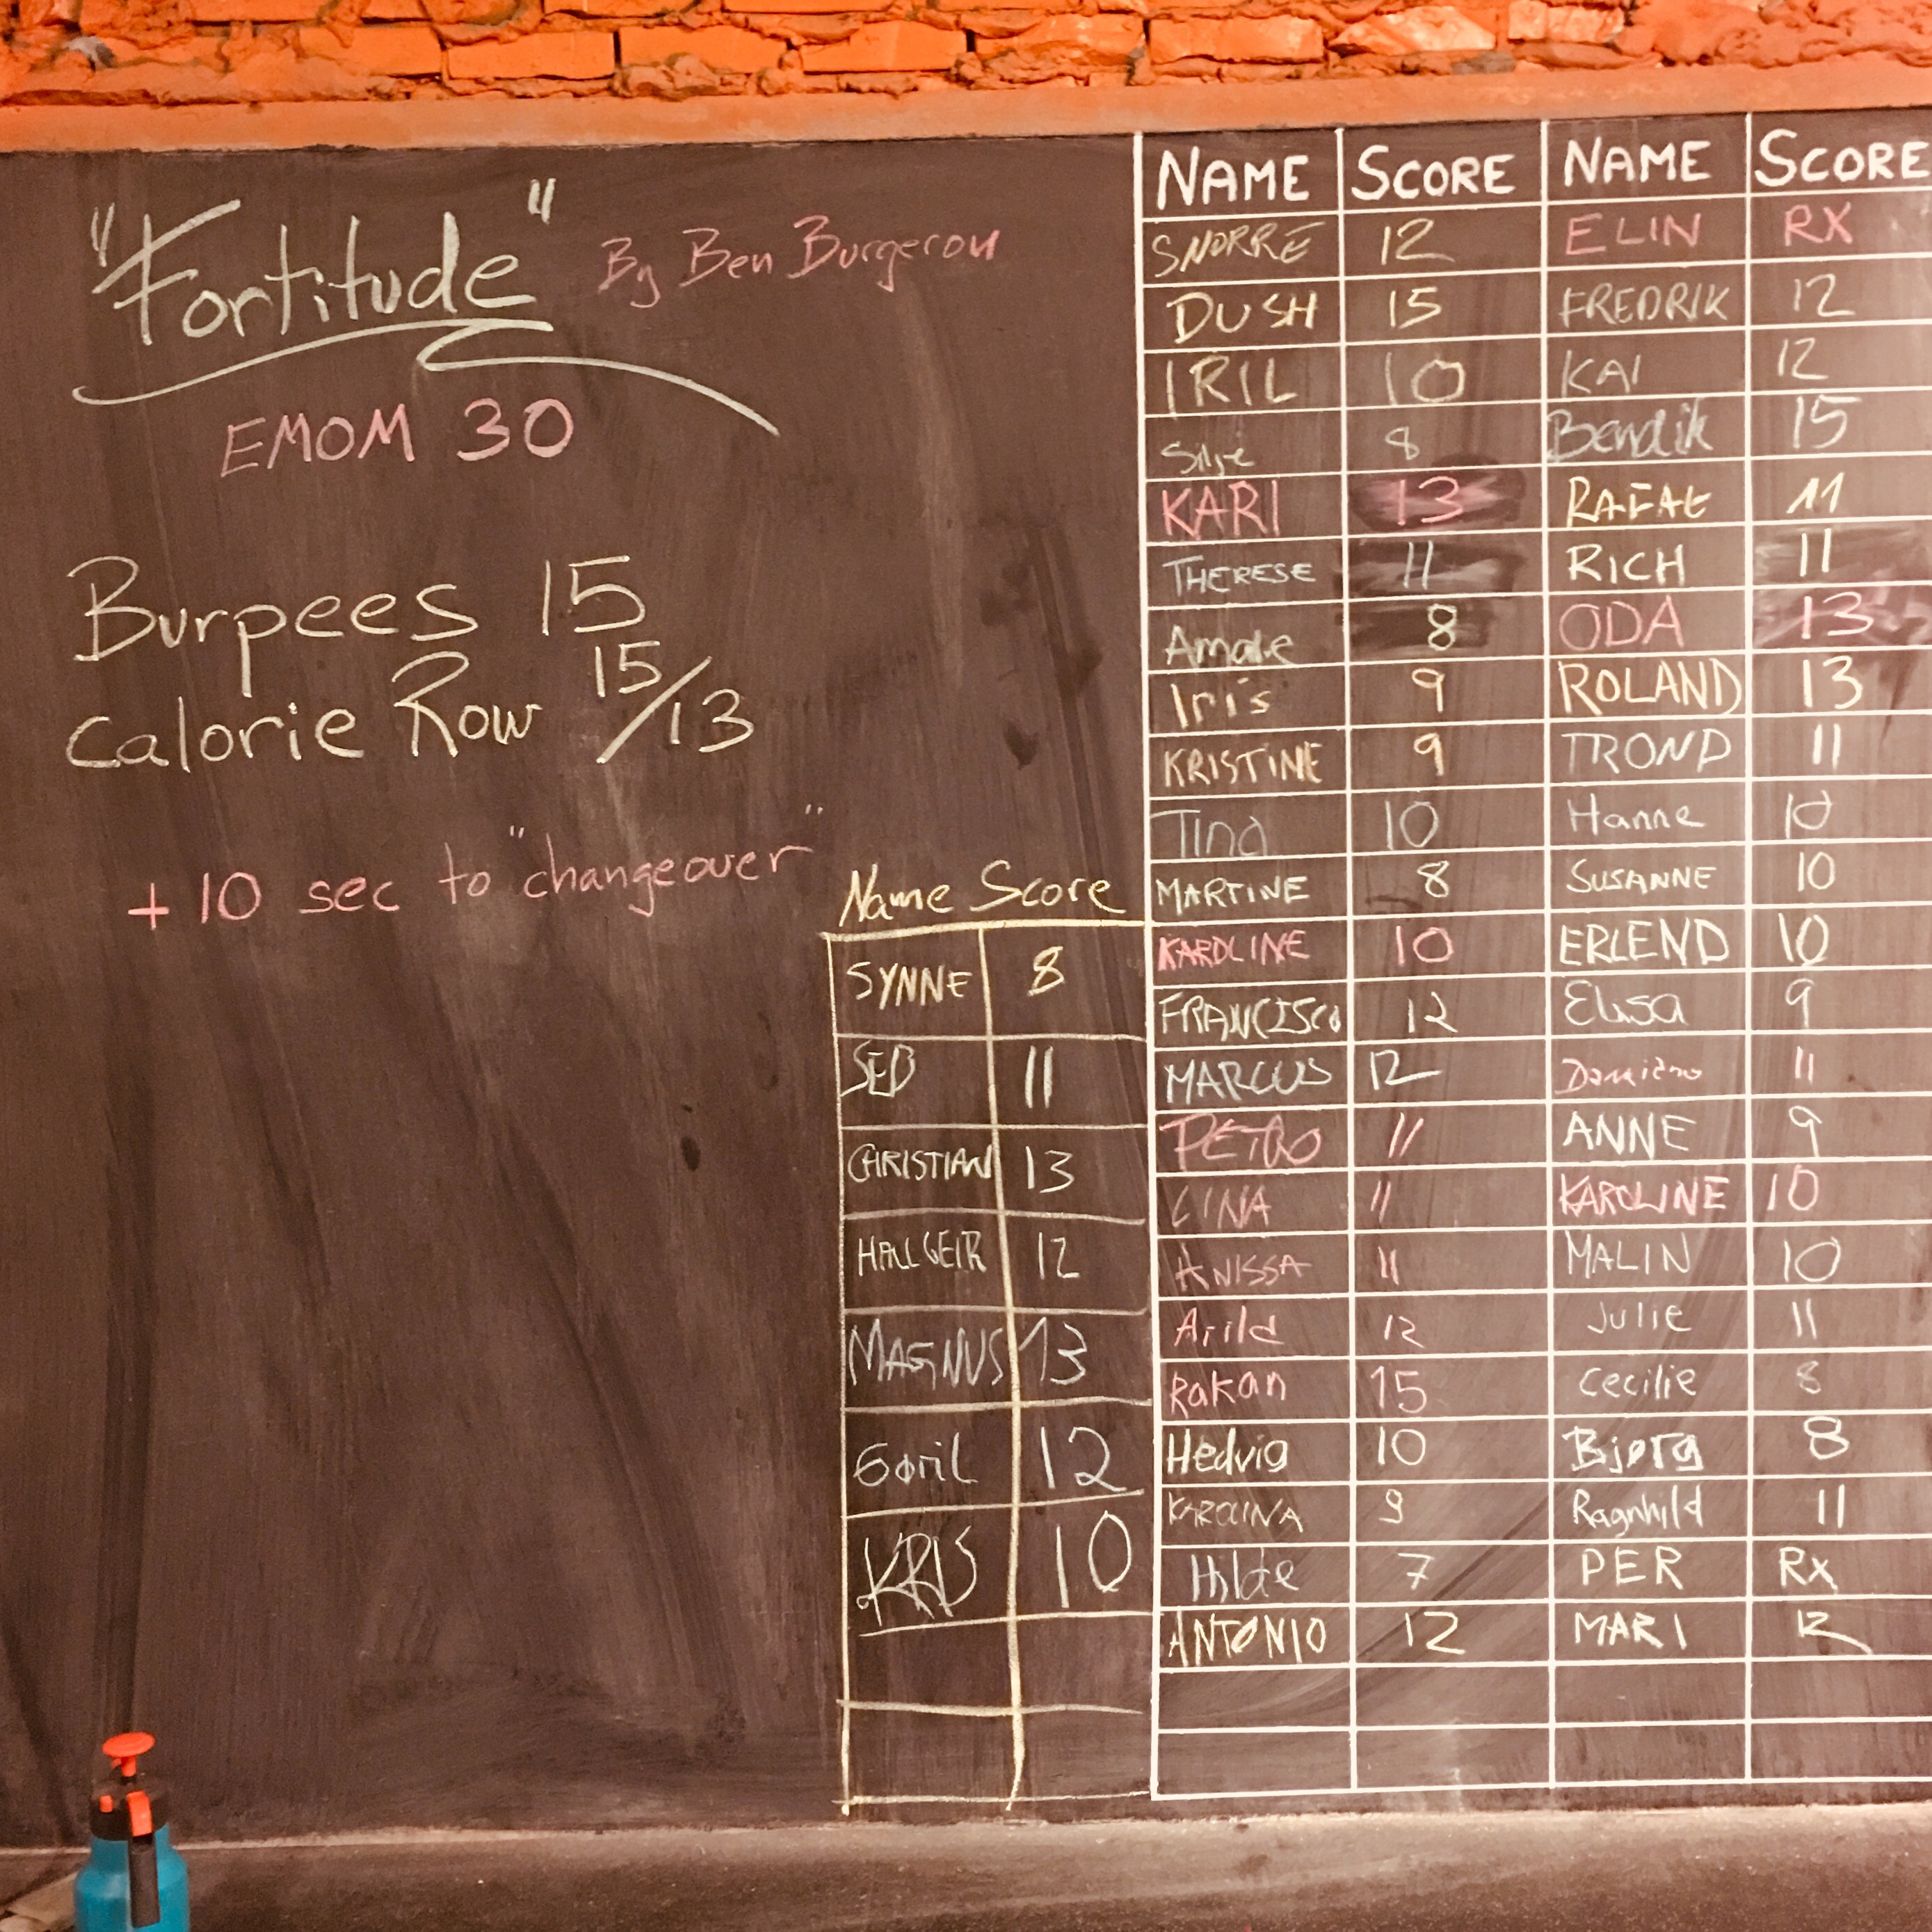 "Fortitude" By Ben Burgeron
EMOM 30
Burpees 15
Calorie Row 15/13
+ 10 sec to "changeover"
Name Score
SYNNE 8
SEB 11
CHRISTIAN 13
HALLGEIR 12
MAGNUS 13
Goril 12
KRIS 10
NAME SCORE NAME SCORE
SNORRE 12 ELIN RX
DUSH 15 FREDRIK 12
IRIL 10 KAI 12
Silje 8 Bendik 15
KARI 13 RAFAŁ 11
THERESE 11 RICH 11
Amalie 8 ODA 13
Iris 9 ROLAND 13
KRISTINE 9 TROND 11
Tina 10 Hanne 10
MARTINE 8 SUSANNE 10
KAROLINE 10 ERLEND 10
FRANCISCO 12 Elisa 9
MARCUS 12 Damiano 11
PETRO 11 ANNE 9
LINA 11 KAROLINE 10
ANISSA 11 MALIN 10
Arild 12 Julie 11
Rakan 15 Cecilie 8
Hedvig 10 Bjørg 8
KAROLINA 9 Ragnhild 11
Hilde 7 PER RX
ANTONIO 12 MARI 12